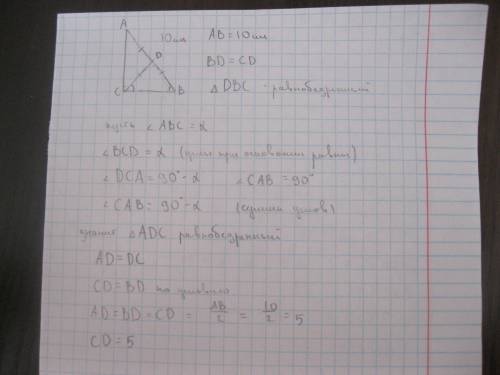 A
10см
D
C
B
AB = 10см
BD = CD
△ DBC - равнобедренный
пусть ∠ ABC = α
∠ BCD = α (углы при основании равны)
∠ DCA = 90° - α ∠ CAB = 90°
∠ CAB = 90° - α (сумма углов)
△ ADC равнобедренный
AD = DC
CD = BD по условию
AD = BD = CD = AB/2 = 10/2 = 5
CD = 5